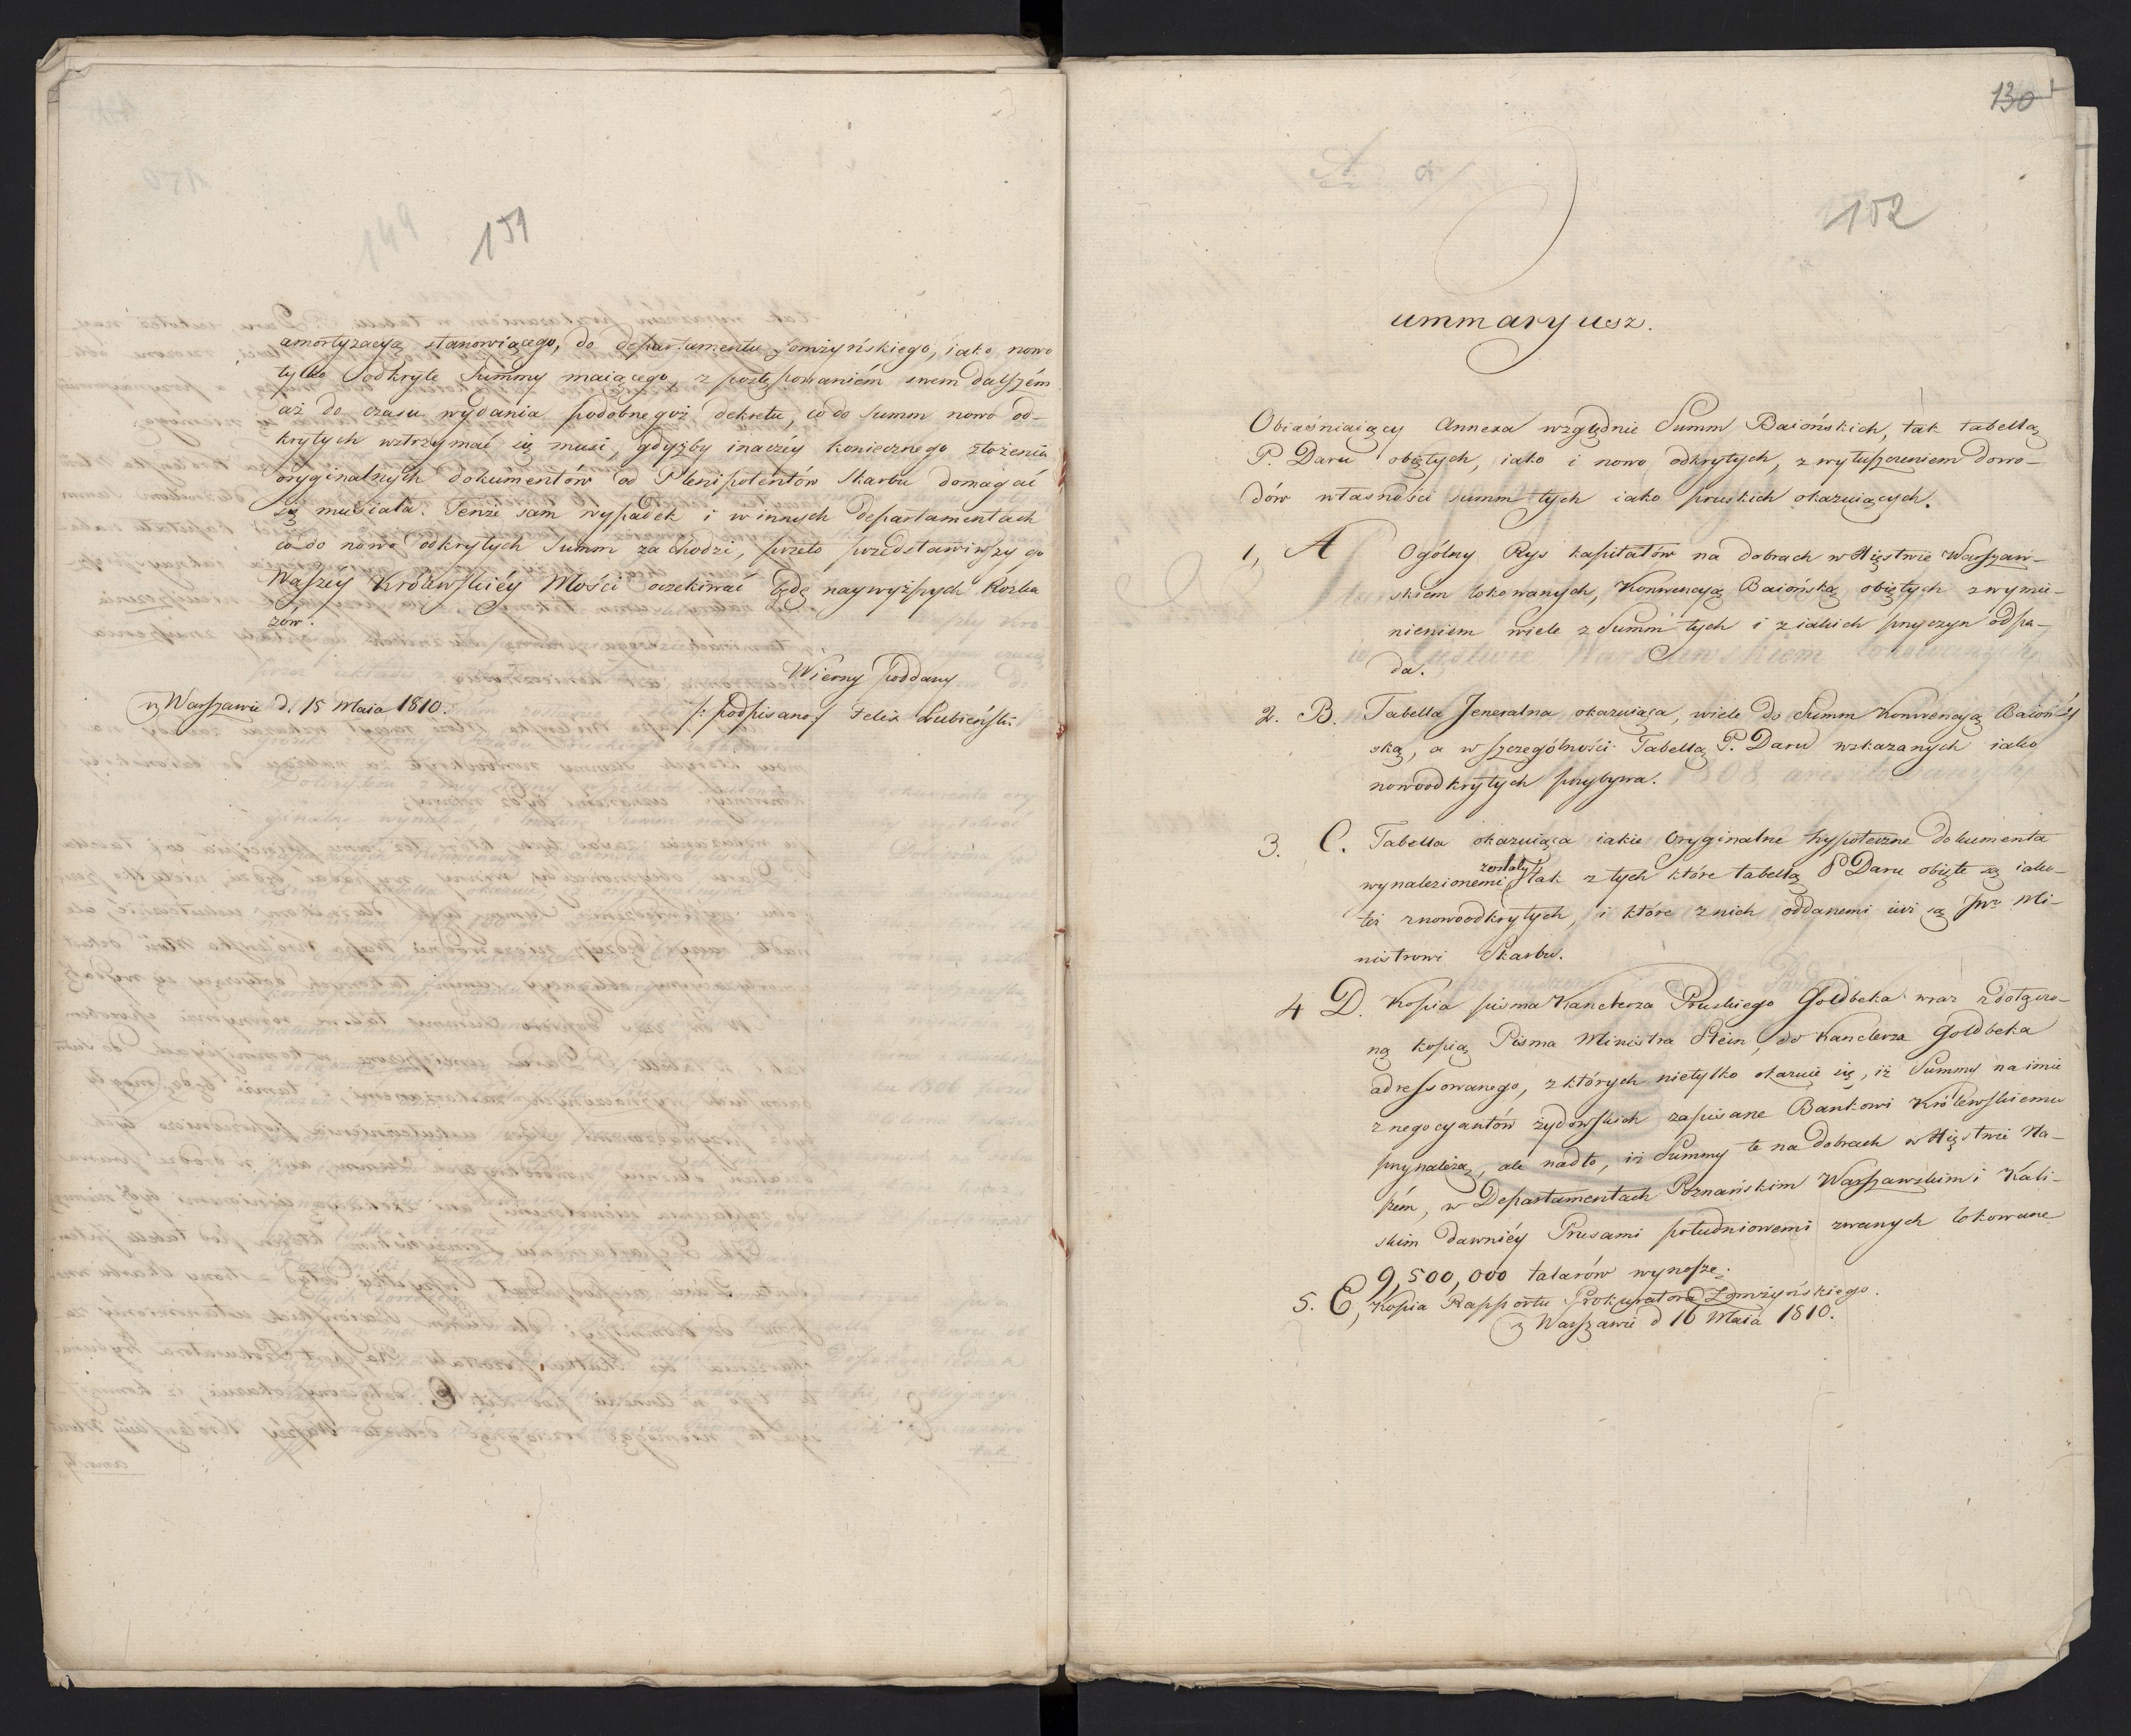 149 151
amortyzacyą stanowiącego, do departamentu Łomżyńskiego, iako nowo
tylko odkryte Summy maiącego, z postępowaniém swem dalszém
aż do czasu wydania podobnegoż dekretu, co do summ nowo od-
krytych wstrzymać się musi, gdyżby inaczéy koniecznego złożenia
oryginalnych dokumentów od Plenipotentów Skarbu domagać
się musiała. Tenże sam wypadek i w innych departamentach
co do nowo odkrytych Summ zachodzi, przeto przedstawiwszy go
Waszéy Królewskiéy Mości oczekiwać będę naywyższych Rozka
zów.
Wierny Poddany
w Warszawie d. 15 Maia 1810.
/: podpisano :/ Felix Łubieński.
130
152
Summaryusz.
Obiaśniaiący Annexa względnie Summ Baiońskich, tak tabellą
P. Daru obiętych, iako i nowo odkrytych, z wyłuszczeniem dowo-
dów własności summ tych iako pruskich okazuiących.
1, A Ogólny Rys kapitałów na dobrach w Xięstwie Warszaw-
skiém lokowanych, Konwencyą Baiońską obiętych z wymie-
nieniem wiele z Summ tych i z iakich przyczyn odpa-
da.
2. B. Tabella Jeneralna okazuiąca, wiele do Summ Konwencyą Baioń-
ską, a w szczególności Tabellą P. Daru wskazanych iako
nowoodkrytych przybywa.
3. C. Tabella okazuiąca iakie Oryginalne hypoteczne dokumenta
zostały
wynalezionemi tak z tych które tabellą P Daru obięte są iako-
też z nowoodkrytych, i które z nich oddanemi iuż są JW. Mi-
nistrowi Skarbu.
4 D. Kopia pisma Kanclerza Pruskiego Goldbeka wraz z dołączo-
ną kopią Pisma Ministra Stein, do Kanclerza Goldbeka
adressowanego, z których nietylko okazuie się, iż Summy na imie
znegocyantów żydowskich zapisane Bankowi Królewskiemu
przynależą, ale nadto, iż Summy te na dobrach w Xięstwie Na-
szém, w Departamentach Poznańskim Warszawskim i Kali-
skim dawniéy Prusami południowemi zwanych lokowane
9,500,000 talarów wynoszę.
5. E, Kopia Rapportu Prokuratora Łomżyńskiego.
w Warszawie d 16 Maia 1810.